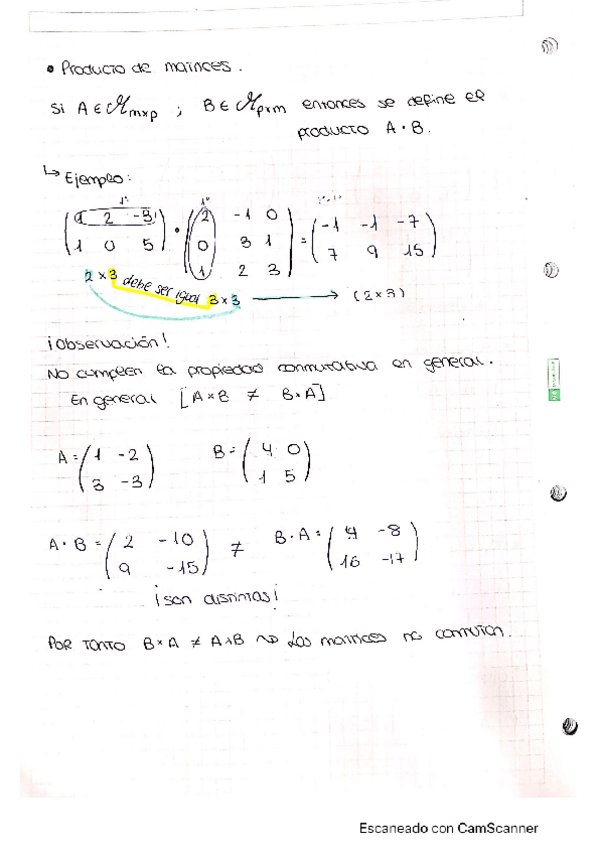 • Producto de matrices.
Si A ∈ ℳmxp ; B ∈ ℳpxm entonces se define el
producto A · B.
↳ Ejemplo:
1º 1º
(1 2 -3) (2 -1 0) (-1 -1 -7)
(1 0 5) · (0 3 1) = (7 9 15)
(1 2 3)
2 x 3 debe ser igual 3 x 3 → (2x3)
¡Observación!
No cumplen la propiedad conmutativa en general.
En general [A x B ≠ B x A]
A = (1 -2) B = (4 0)
(3 -3) (1 5)
A · B = (2 -10) ≠ B · A = (4 -8)
(9 -15) (16 -17)
¡son distintas!
Por tanto B x A ≠ A x B ⇝ Las matrices no conmutan.
Escaneado con CamScanner